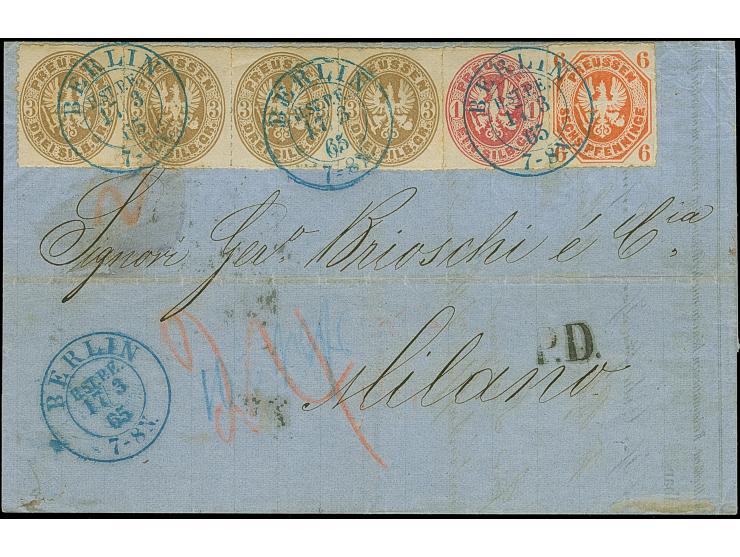 3 PREUSSEN 3
DREI SILB. GR.
PREUSSEN 3
SILB. GR.
PREUSSEN
DREI SILB. GR.
PREUSSEN 3
SILB. GR.
1 PREUSSEN
EIN SILB. GR.
PREUSSEN 6
SECHS PFENNINGE
6 6
BERLIN
P.E.
17 3
65
7-8N.
BERLIN
P.E.
17 3
65
7-8N
BERLIN
P.E.
17 3
65
7-8N
2
Signori Gerº. Brioschi é Cia
P.D.
Milano
BERLIN
P.E.
17 3
65
7-8N.